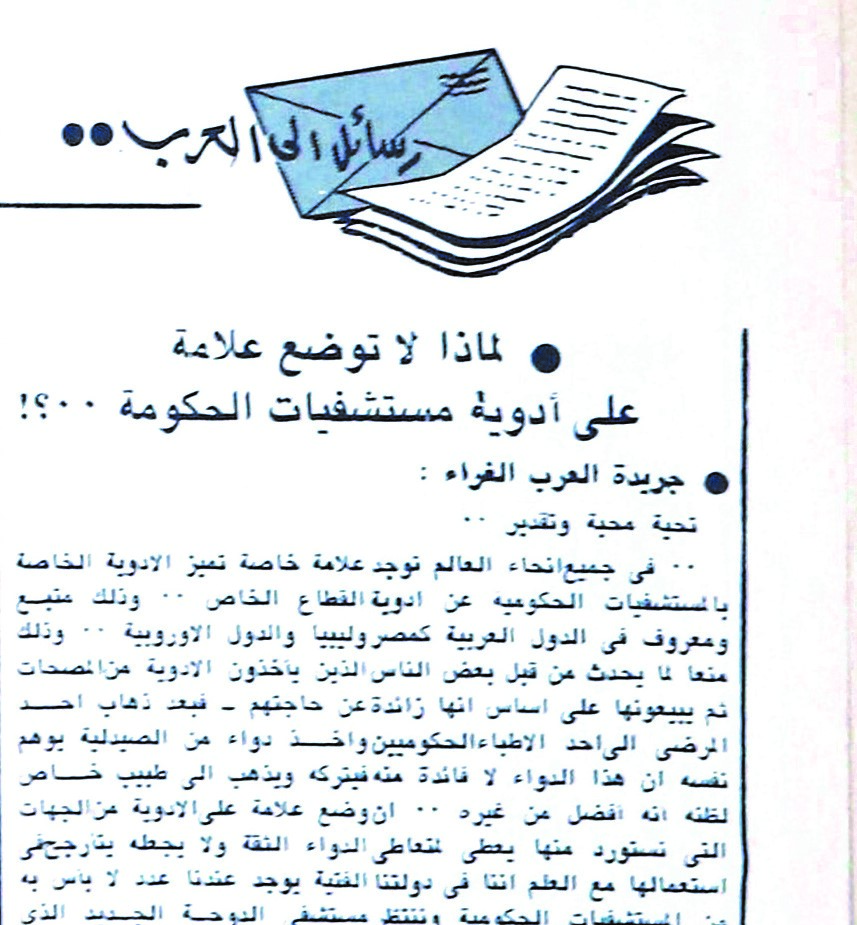 رسائل الى العرب ••
● لماذا لا توضع علامة
على أدوية مستشفيات الحكومة ٠٠؟!
● جريدة العرب الغراء :
تحية محبة وتقدير ٠٠
٠٠ فى جميع انحاء العالم توجد علامة خاصة تميز الادوية الخاصة
بالمستشفيات الحكوميه عن ادوية القطاع الخاص ٠٠ وذلك متبع
ومعروف فى الدول العربية كمصر وليبيا والدول الاوروبية ٠٠ وذلك
منعا لما يحدث من قبل بعض الناس الذين يأخذون الادوية من المصحات
ثم يبيعونها على اساس انها زائدة عن حاجتهم ـ فبعد ذهاب احد
المرضى الى احد الاطباء الحكوميين واخذ دواء من الصيدلية يوهم
نفسه ان هذا الدواء لا فائدة منه فيتركه ويذهب الى طبيب خاص
لظنه انه افضل من غيره ٠٠ ان وضع علامة على الادوية من الجهات
التى نستورد منها يعطى لمتعاطى الدواء الثقة ولا يجعله يتأرجح فى
استعمالها مع العلم اننا فى دولتنا الفتية يوجد عندنا عدد لا بأس به
من المستشفيات الحكومية وننتظر مستشفى الدوحة الجديد الذى